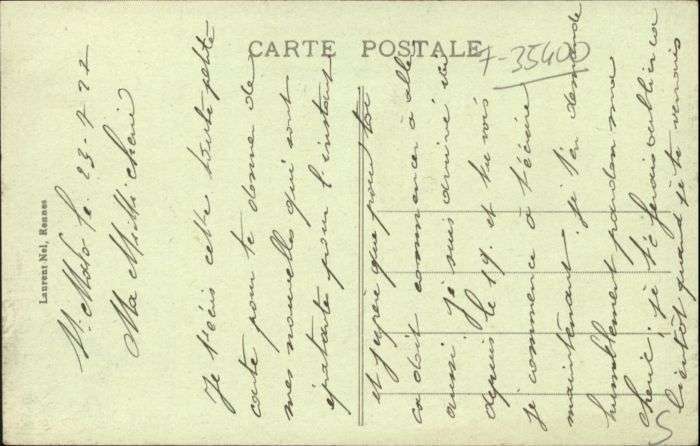 CARTE POSTALE
7-35400
Laurent Nel, Rennes
St Malo le 23-7-22
Ma chérie
Je t'écis cette toute petite
carte pour te donne de
mes nouvelles qui sont
épatante pour l'instant
et j'espère que pour toi
ca doit commencer à aller
aussi. je suis arrivé ici
depuis le 19. et tu vois
je commence à t'écrire
maintenant. je t'en demande
humblement pardon ma
chérie, je te ferais oublier ca
bientot quand je te verrais